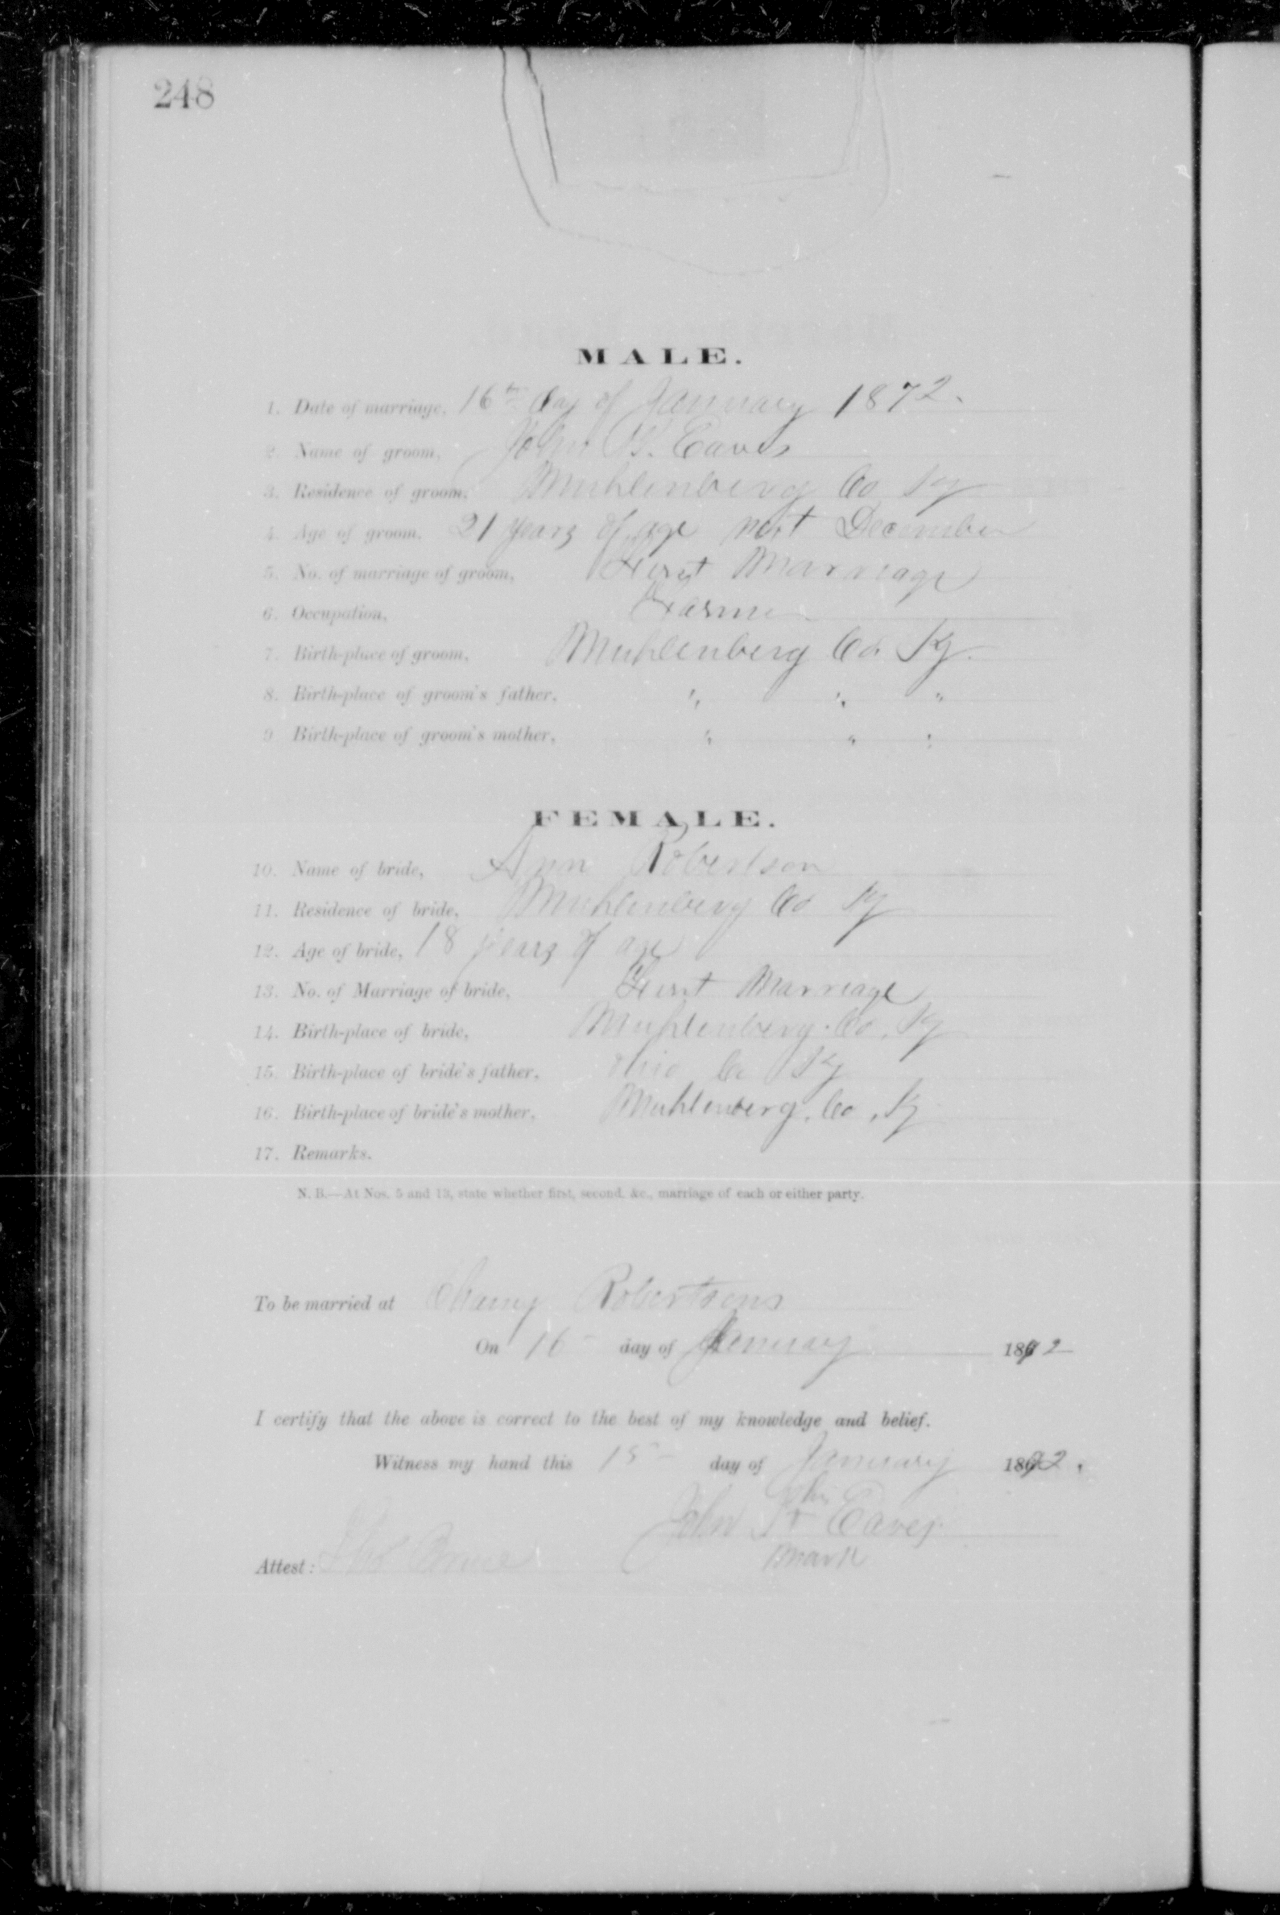 248
MALE.
1. Date of marriage, 16th day of January 1872.
2. Name of groom, John Eaves
3. Residence of groom, Muhlenberg Co Ky
4. Age of groom, 21 years of age next December
5. No. of marriage of groom, First Marriage
6. Occupation, Farmer
7. Birth-place of groom, Muhlenberg Co. Ky.
8. Birth-place of groom's father, " " "
9. Birth-place of groom's mother, " " "
FEMALE.
10. Name of bride, Ann Robertson
11. Residence of bride, Muhlenberg Co Ky
12. Age of bride, 18 years of age
13. No. of Marriage of bride, First Marriage
14. Birth-place of bride, Muhlenberg. Co. Ky
15. Birth-place of bride's father, Ohio Co Ky
16. Birth-place of bride's mother, Muhlenberg. Co. Ky
17. Remarks.
N. B.—At Nos. 5 and 13, state whether first, second, &c., marriage of each or either party.
To be married at Robertsons
On 16 day of January 1872
I certify that the above is correct to the best of my knowledge and belief.
Witness my hand this 15 day of January 1872.
his
John Eaves
mark
Attest: